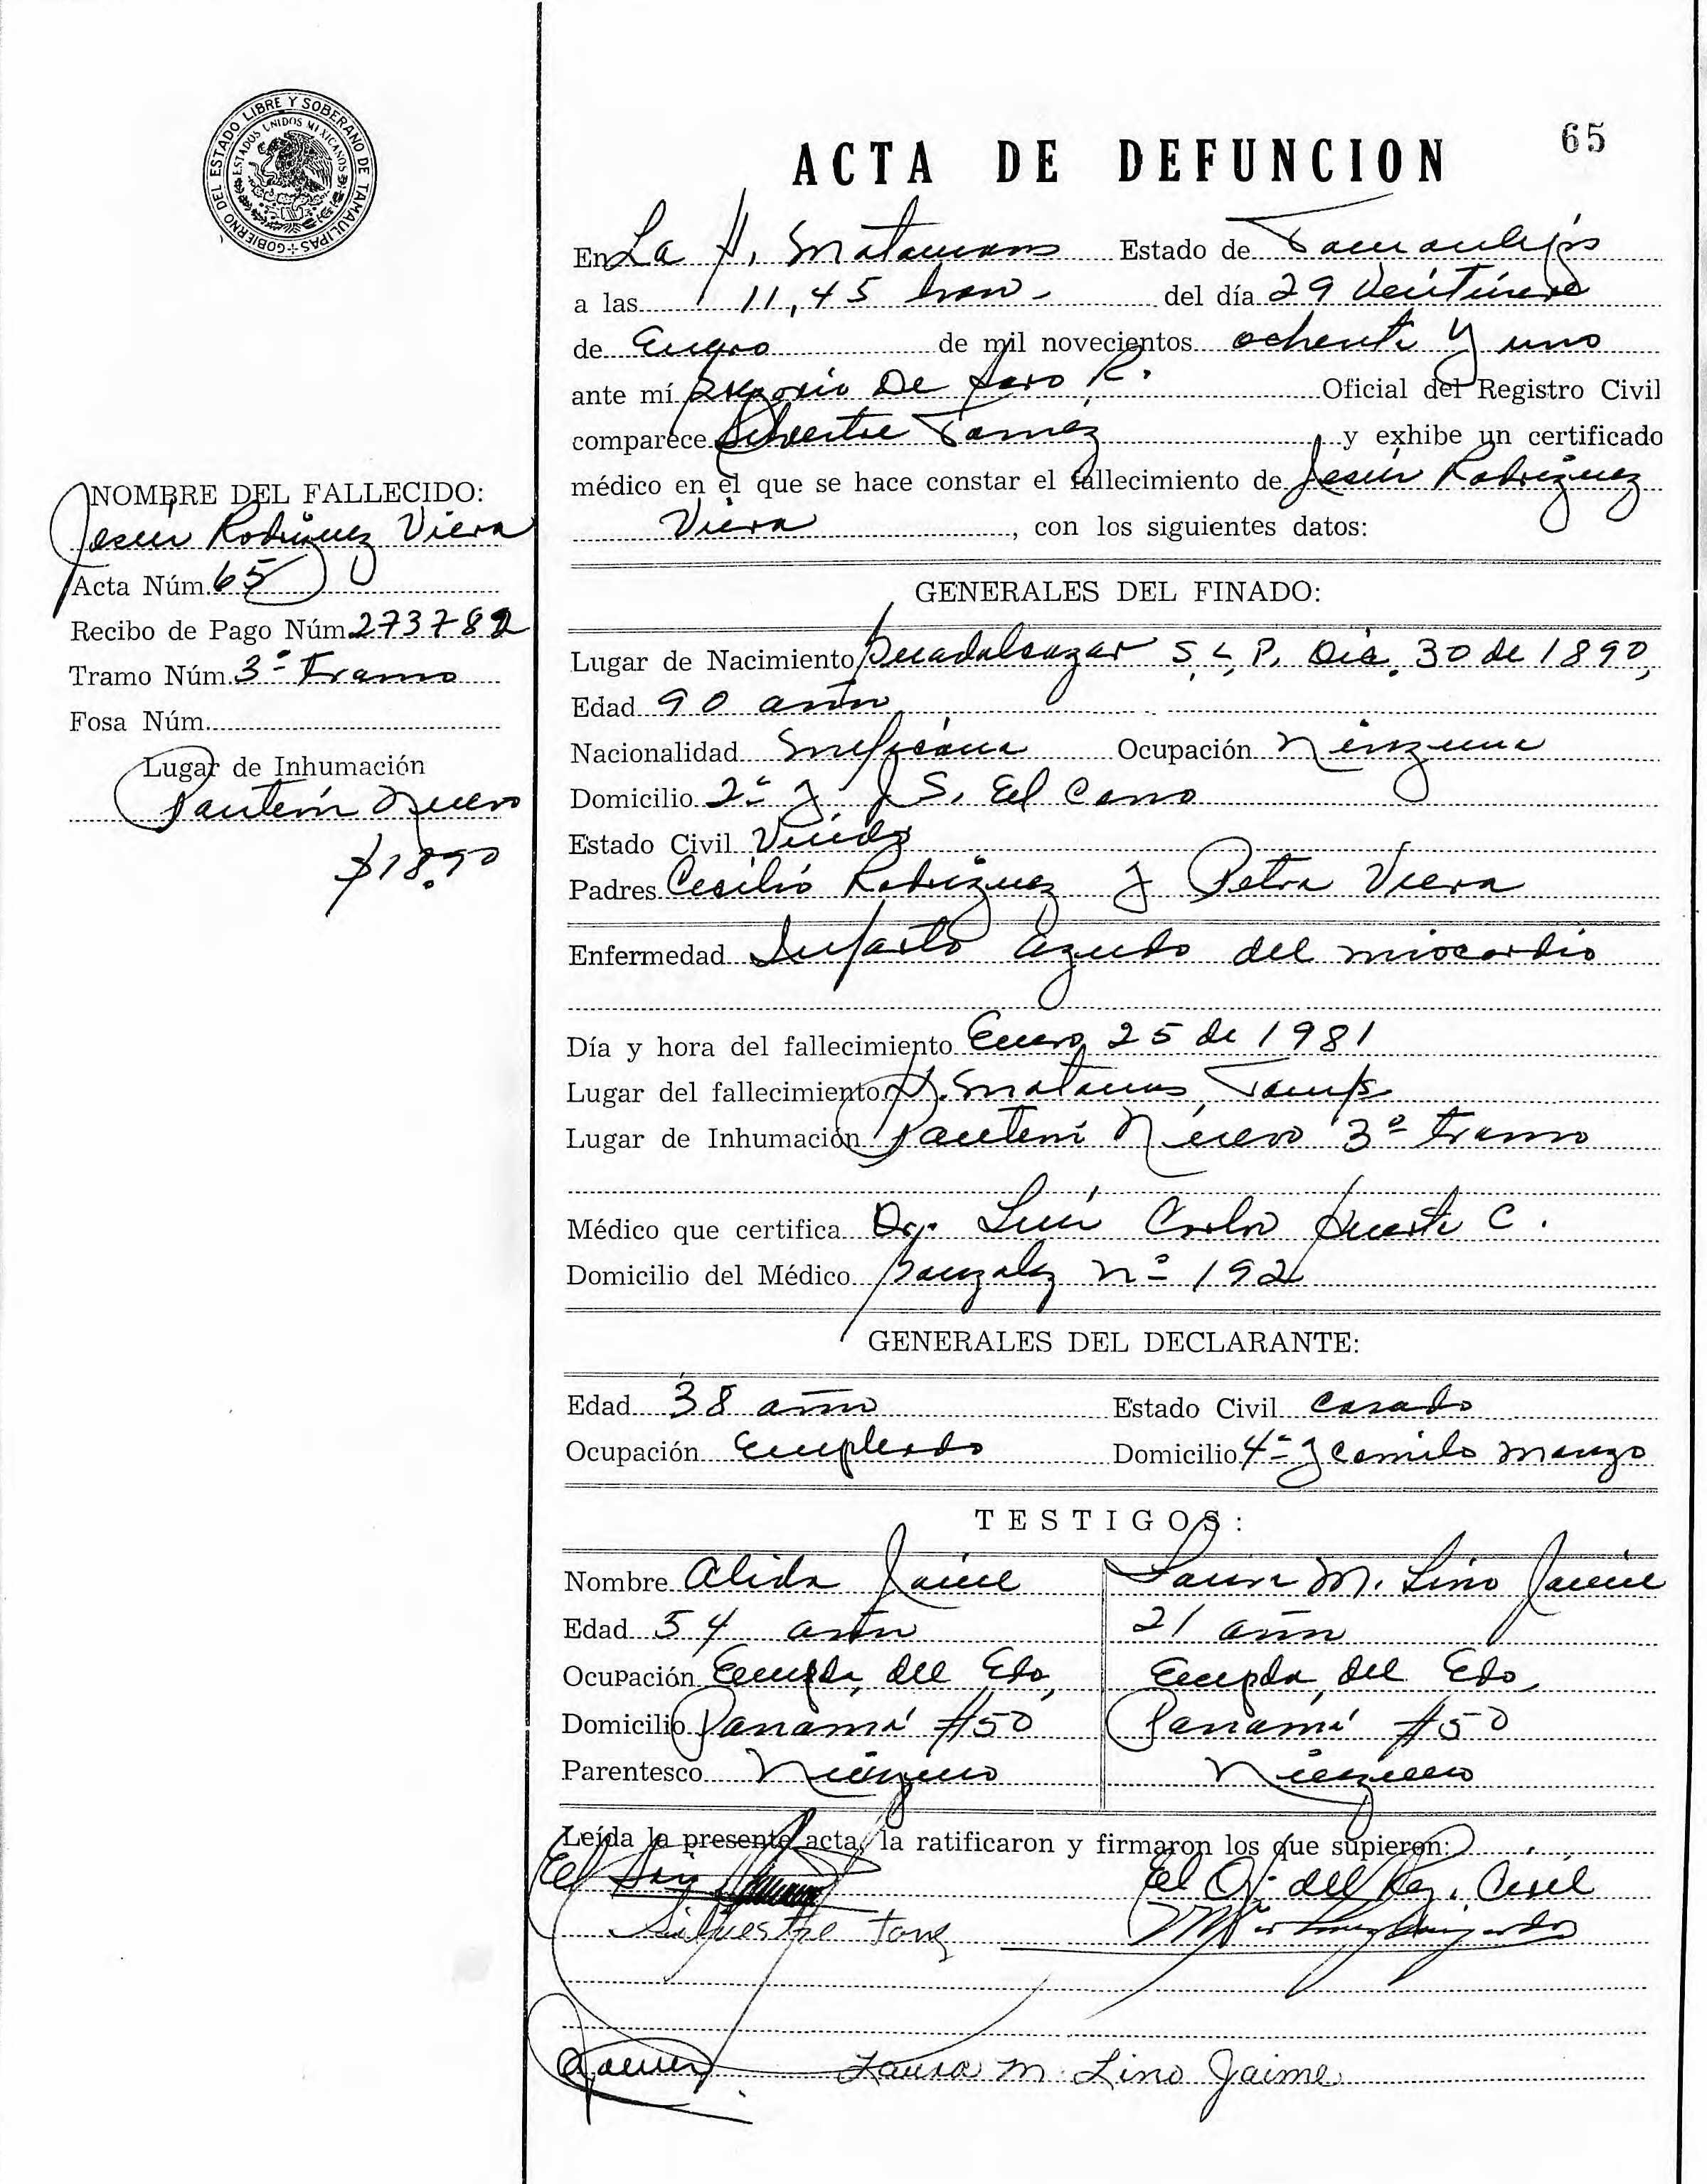 GOBIERNO DEL ESTADO LIBRE Y SOBERANO DE TAMAULIPAS
ESTADOS UNIDOS MEXICANOS
65
ACTA DE DEFUNCION
En La H. Matamoros Estado de Tamaulipas
a las 11,45 horas del día 29 Veintinueve
de Enero de mil novecientos ochenta y uno
ante mí De R. Oficial del Registro Civil
comparece Silvestre Tamez y exhibe un certificado
médico en el que se hace constar el fallecimiento de Jesús Rodriguez
Viera, con los siguientes datos:
NOMBRE DEL FALLECIDO:
Jesus Rodriguez Viera
Acta Núm. 65
Recibo de Pago Núm.
Tramo Núm. 3º Tramo
Fosa Núm.
Lugar de Inhumación
Panteón Nuevo
$18.90
GENERALES DEL FINADO:
Lugar de Nacimiento Guadalcazar S.L.P. Dic. 30 de 1890,
Edad 90 años
Nacionalidad Mexicana Ocupación Ninguna
Domicilio 2ª y
Estado Civil Viudo
Padres Cecilio Rodriguez y Petra Viera
Enfermedad Infarto agudo del miocardio
Día y hora del fallecimiento Enero 25 de 1981
Lugar del fallecimiento H. Matamoros, Tamps
Lugar de Inhumación Panteón Nuevo 3º tramo
Médico que certifica Dr. Luis Carlos C.
Domicilio del Médico Gonzalez Nº 192
GENERALES DEL DECLARANTE:
Edad 38 años Estado Civil Casado
Ocupación Empleado Domicilio 4ª y Camilo Manzo
TESTIGOS:
Nombre Alida Jaime Laura M. Lino Jaime
Edad 54 años 21 años
Ocupación Empda, del Edo, Empda, del Edo,
Domicilio Panamá #50 Panamá #50
Parentesco Ninguno Ninguno
Leída la presente acta, la ratificaron y firmaron los que supieron:
El
El Of. del Reg. Civil
Silvestre
Laura M. Lino Jaime